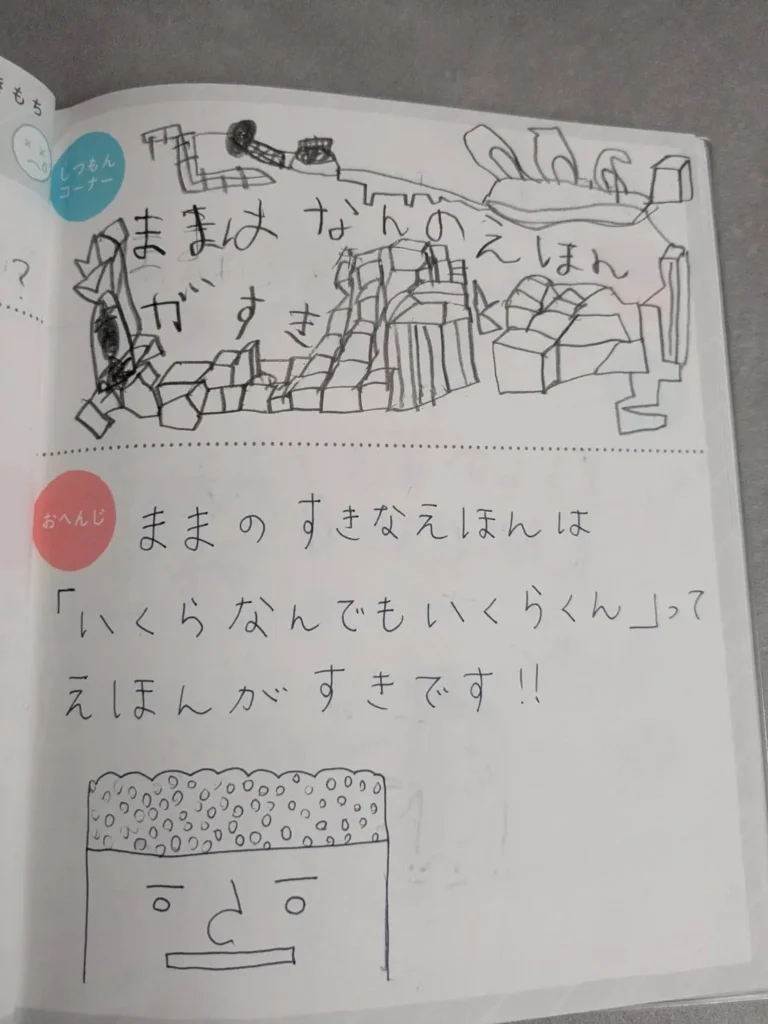 きもち
?
しつもん
コーナー
ままは なんの えほん
が すき
おへんじ
ままの すきなえほんは
「いくらなんでもいくらくん」って
えほんが すきです!!